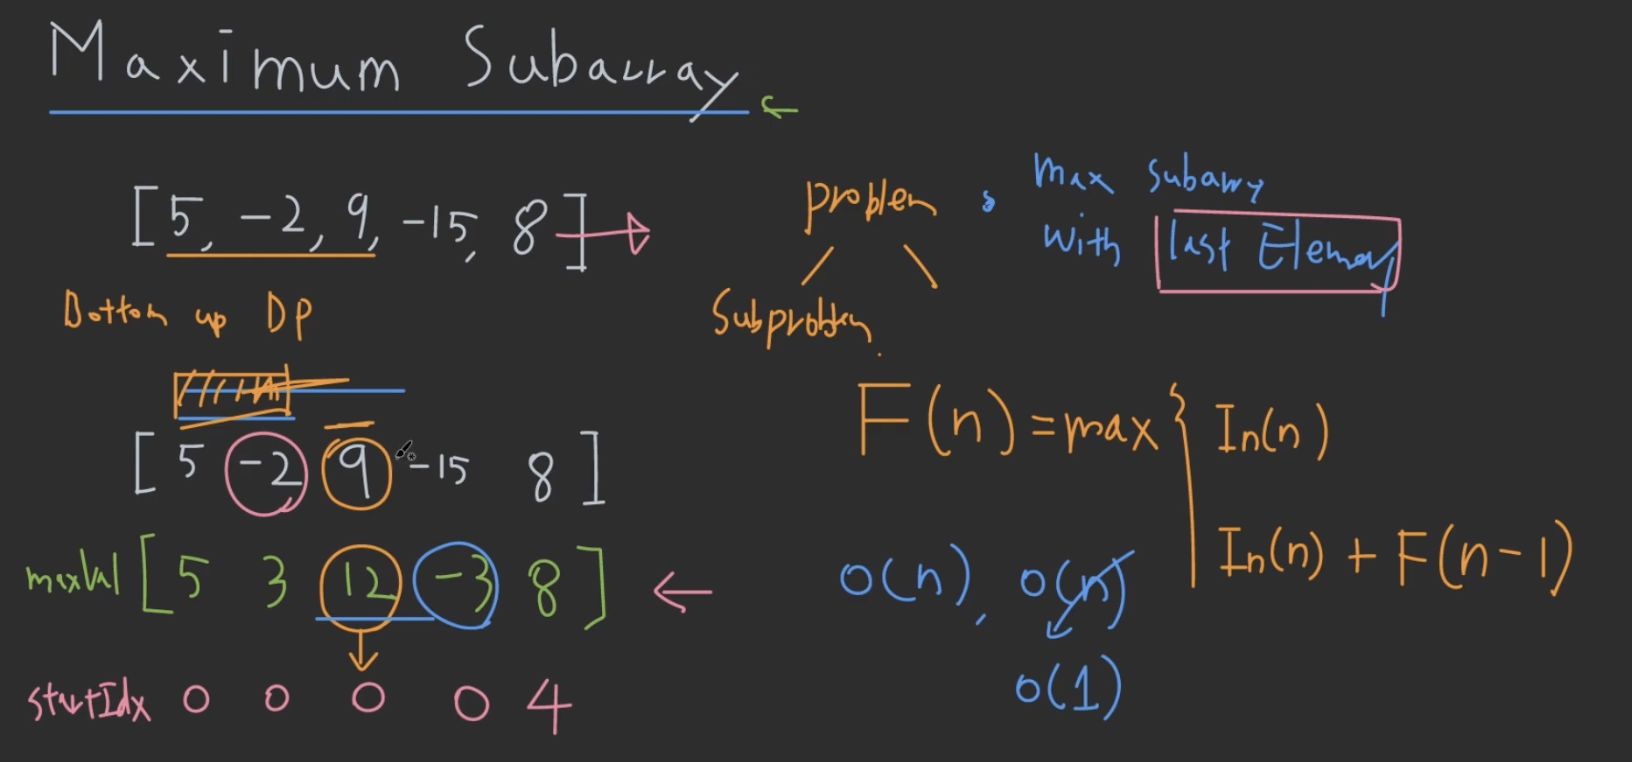 Maximum Subarray
[5, -2, 9, -15, 8]
Bottom up DP
[5 -2 9 -15 8]
maxVal [5 3 12 -3 8]
startIdx 0 0 0 0 4
problem
Subproblem
max Subarry
with last Element
F(n) = max { In(n)
In(n) + F(n-1)
O(n), O(n)
O(1)